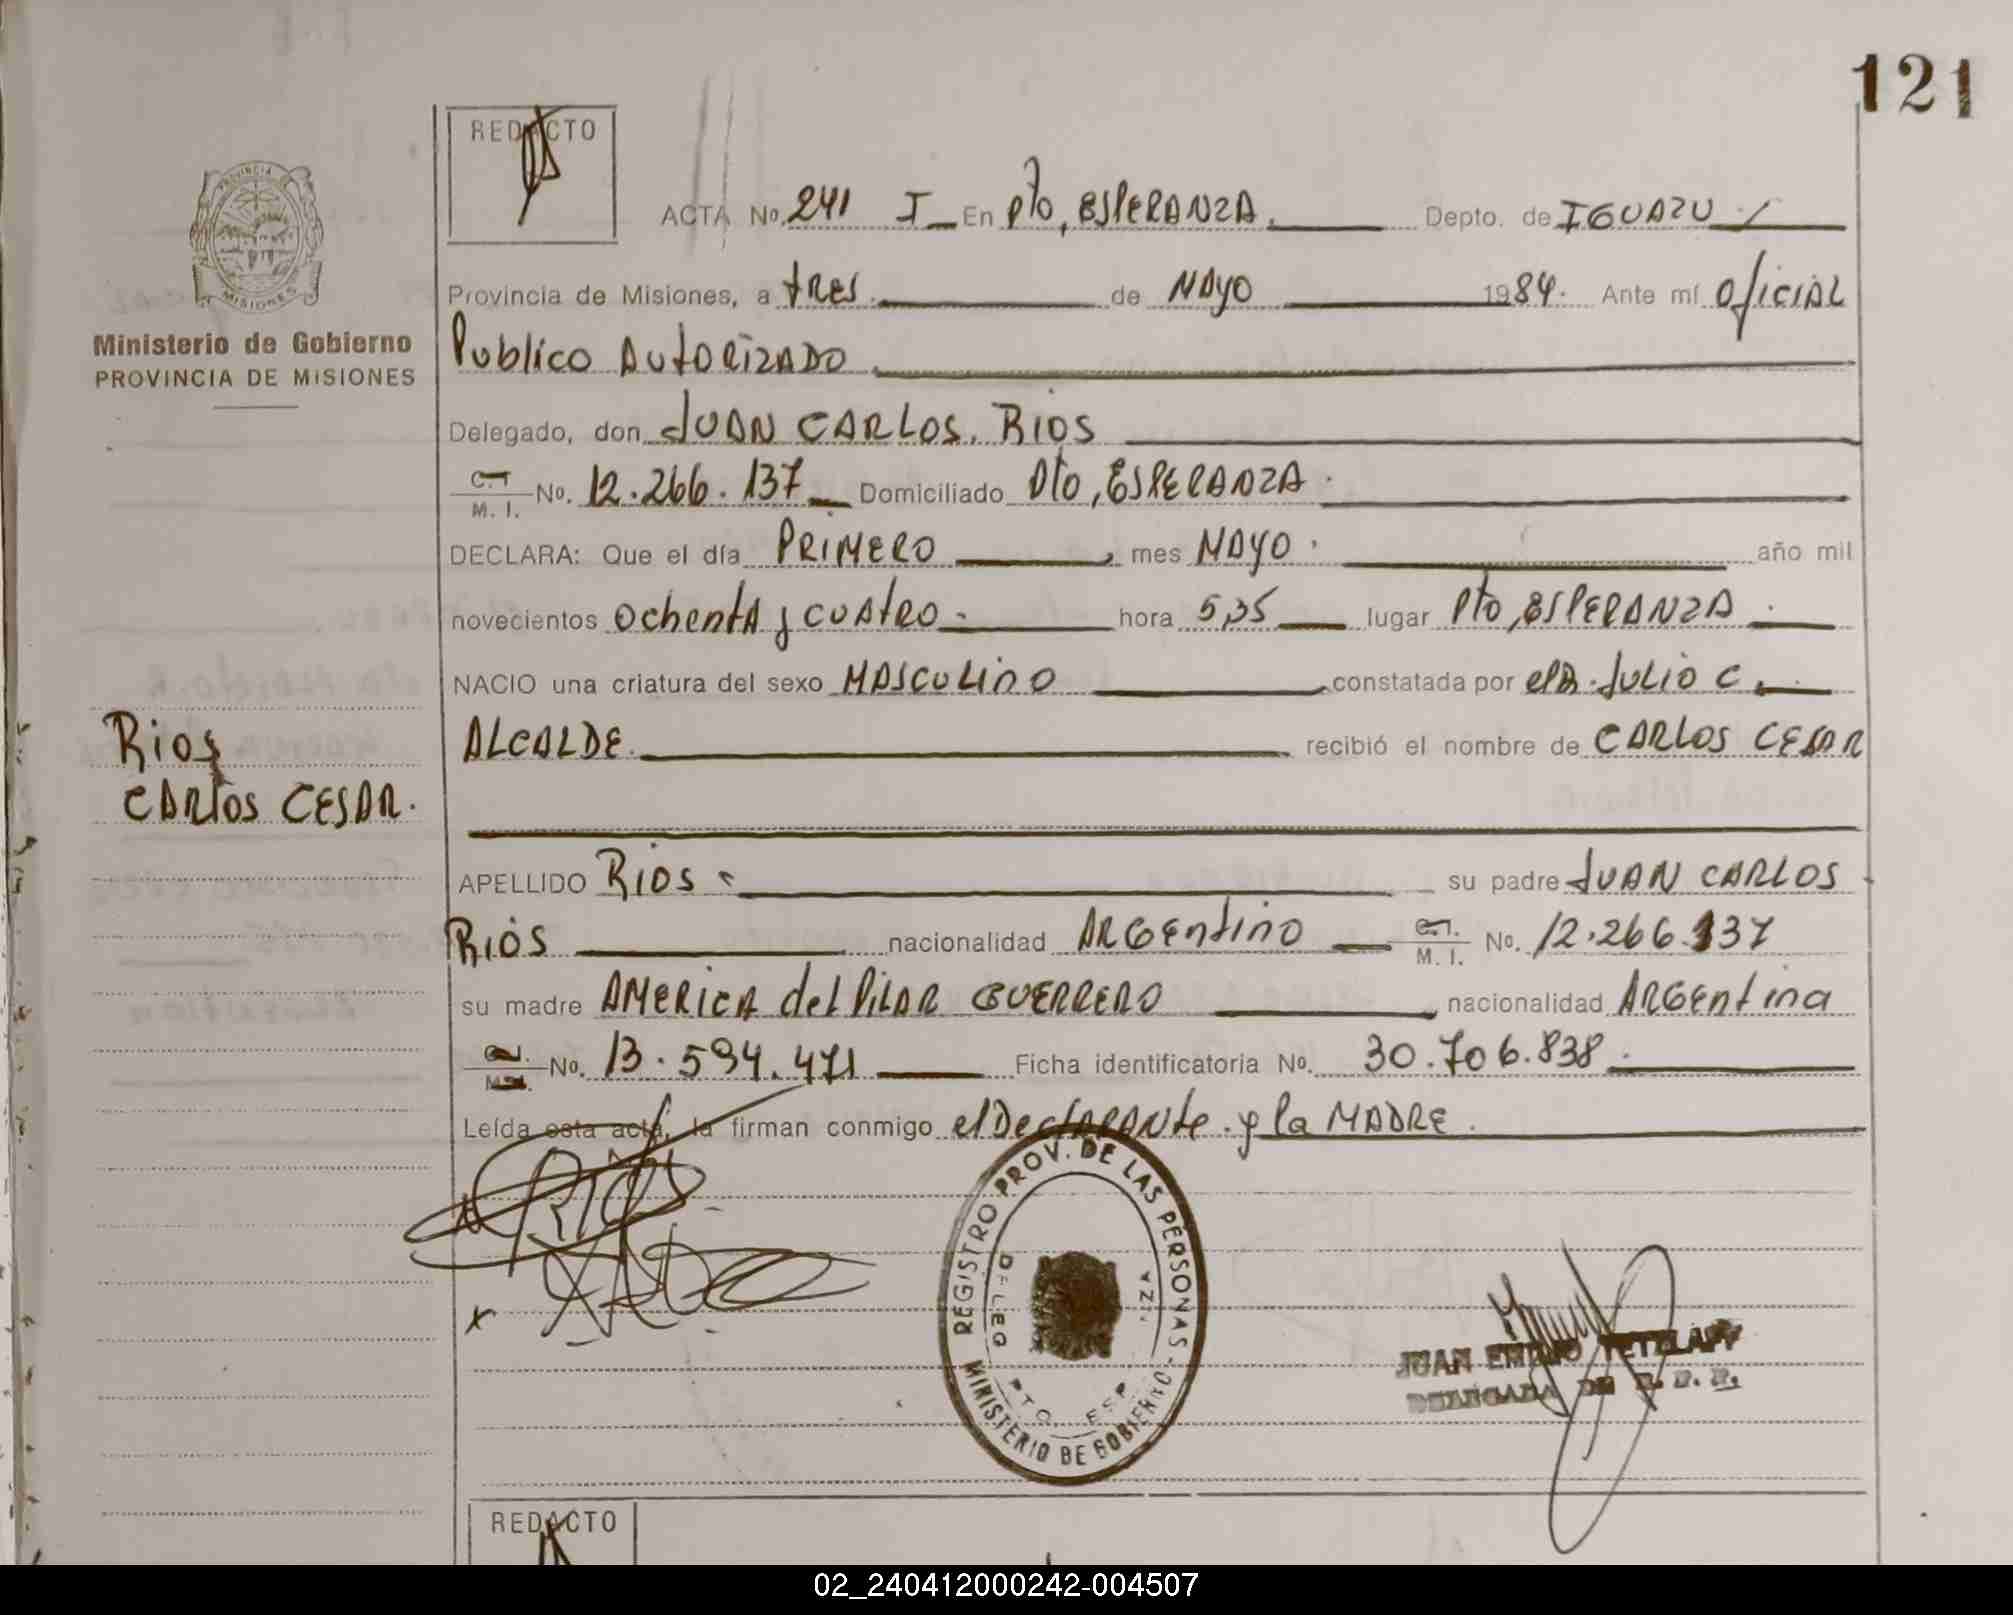 121
REDACTO
ACTA No. 241 I En Pto, ESPERANZA. Depto. de IGUAZU
Provincia de Misiones, a tres de MAYO 1984. Ante mí Oficial
Publico AUTORIZADO
Delegado, don JUAN CARLOS. RIOS
C.I. M. I. No. 12.266.137 Domiciliado Pto, ESPERANZA.
DECLARA: Que el día PRIMERO, mes MAYO. año mil
novecientos ochenta y cuatro. hora 5,35 lugar Pto, ESPERANZA.
NACIO una criatura del sexo MASCULINO constatada por el Dr. JULIO C.
ALCALDE. recibió el nombre de CARLOS CESAR
APELLIDO RIOS su padre JUAN CARLOS
RIOS nacionalidad ARGENTINO C.I. M. I. No. 12.266.137
su madre AMERICA del PILAR GUERRERO, nacionalidad ARGENTINA
No. 13.594.471 Ficha identificatoria No. 30.706.838.
Leída esta acta, la firman conmigo el DECLARANTE. y la MADRE.
RIOS
X
PROVINCIA DE
MISIONES
Ministerio de Gobierno
PROVINCIA DE MISIONES
Rios
CARLOS CESAR.
REGISTRO PROV. DE LAS PERSONAS - MINISTERIO DE GOBIERNO
DELEG PTO. ESP
JUAN EMILIO
REDACTO
02_240412000242-004507